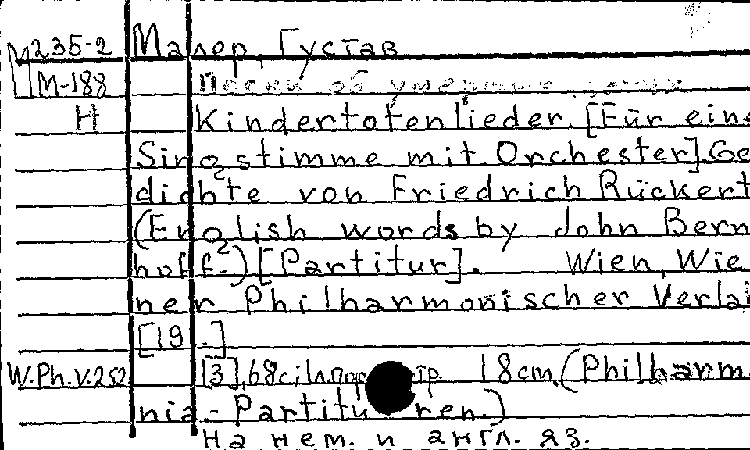 М235-2 Малер, Густав
М-188 Песни об умерших детях
Н Kindertotenlieder. [Für eine
Singstimme mit Orchester]. Ge
dichte von Friedrich Rückert
(English words by John Bern
hoff.) [Partitur]. Wien, Wie
ner Philharmonischer Verla
[19 .]
W.Ph.V.252 [3], 68 с. 18 cm. (Philharm
nia-Partitu ren.)
На нем. и англ. яз.